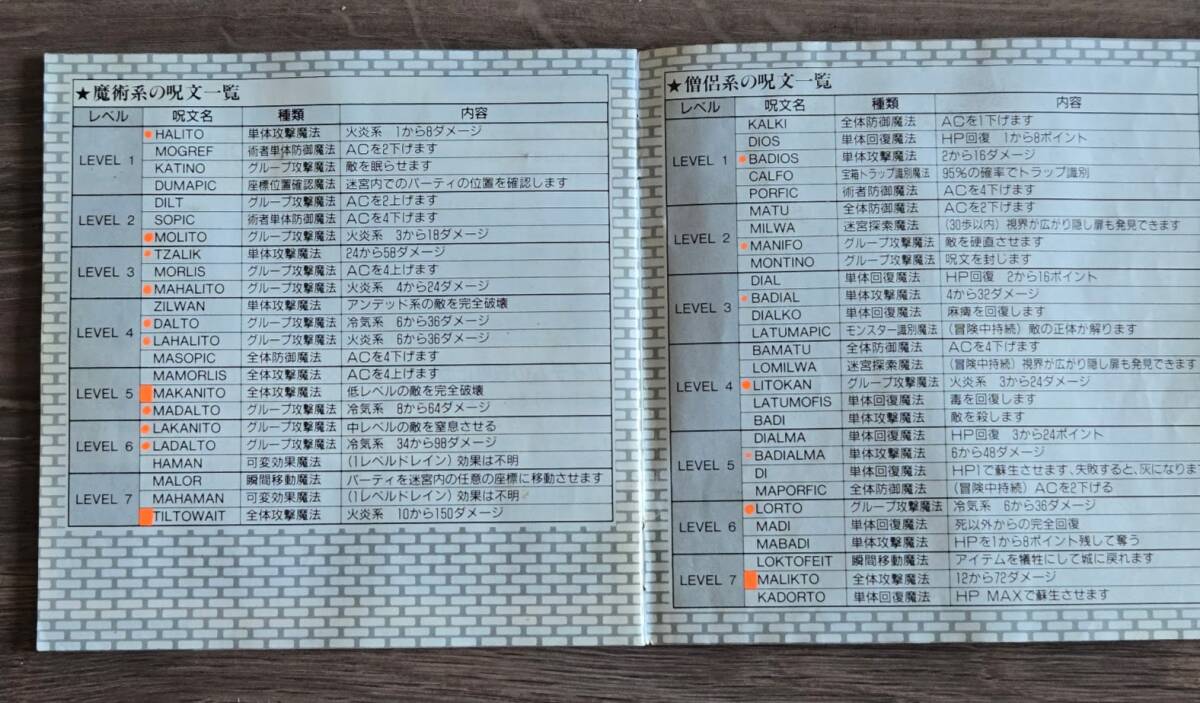 ★魔術系の呪文一覧
レベル 呪文名 種類 内容
LEVEL 1
HALITO 単体攻撃魔法 火炎系 1から8ダメージ
MOGREF 術者単体防御魔法 ACを2下げます
KATINO グループ攻撃魔法 敵を眠らせます
DUMAPIC 座標位置確認魔法 迷宮内でのパーティの位置を確認します
LEVEL 2
DILT グループ攻撃魔法 ACを2上げます
SOPIC 術者単体防御魔法 ACを4下げます
MOLITO グループ攻撃魔法 火炎系 3から18ダメージ
LEVEL 3
TZALIK 単体攻撃魔法 24から58ダメージ
MORLIS グループ攻撃魔法 ACを4上げます
MAHALITO グループ攻撃魔法 火炎系 4から24ダメージ
LEVEL 4
ZILWAN 単体攻撃魔法 アンデッド系の敵を完全破壊
DALTO グループ攻撃魔法 冷気系 6から36ダメージ
LAHALITO グループ攻撃魔法 火炎系 6から36ダメージ
MASOPIC 全体防御魔法 ACを4下げます
LEVEL 5
MAMORLIS 全体攻撃魔法 ACを4上げます
MAKANITO 全体攻撃魔法 低レベルの敵を完全破壊
MADALTO グループ攻撃魔法 冷気系 8から64ダメージ
LEVEL 6
LAKANITO グループ攻撃魔法 中レベルの敵を窒息させる
LADALTO グループ攻撃魔法 冷気系 34から98ダメージ
HAMAN 可変効果魔法 (1レベルドレイン) 効果は不明
LEVEL 7
MALOR 瞬間移動魔法 パーティを迷宮内の任意の座標に移動させます
MAHAMAN 可変効果魔法 (1レベルドレイン) 効果は不明
TILTOWAIT 全体攻撃魔法 火炎系 10から150ダメージ
★僧侶系の呪文一覧
レベル 呪文名 種類 内容
LEVEL 1
KALKI 全体防御魔法 ACを1下げます
DIOS 単体回復魔法 HP回復 1から8ポイント
BADIOS 単体攻撃魔法 2から16ダメージ
CALFO 宝箱トラップ識別魔法 95%の確率でトラップ識別
PORFIC 術者防御魔法 ACを4下げます
LEVEL 2
MATU 全体防御魔法 ACを2下げます
MILWA 迷宮探索魔法 (30歩以内) 視界が広がり隠し扉も発見できます
MANIFO グループ攻撃魔法 敵を硬直させます
MONTINO グループ攻撃魔法 呪文を封じます
LEVEL 3
DIAL 単体回復魔法 HP回復 2から16ポイント
BADIAL 単体攻撃魔法 4から32ダメージ
DIALKO 単体回復魔法 麻痺を回復します
LATUMAPIC モンスター識別魔法 (冒険中持続) 敵の正体が解ります
LEVEL 4
BAMATU 全体防御魔法 ACを4下げます
LOMILWA 迷宮探索魔法 (冒険中持続) 視界が広がり隠し扉も発見できます
LITOKAN グループ攻撃魔法 火炎系 3から24ダメージ
LATUMOFIS 単体回復魔法 毒を回復します
BADI 単体攻撃魔法 敵を殺します
LEVEL 5
DIALMA 単体回復魔法 HP回復 3から24ポイント
BADIALMA 単体攻撃魔法 6から48ダメージ
DI 単体回復魔法 HP1で蘇生させます、失敗すると、灰になりま
MAPORFIC 全体防御魔法 (冒険中持続) ACを2下げる
LEVEL 6
LORTO グループ攻撃魔法 冷気系 6から36ダメージ
MADI 単体回復魔法 死以外からの完全回復
MABADI 単体攻撃魔法 HPを1から8ポイント残して奪う
LEVEL 7
LOKTOFEIT 瞬間移動魔法 アイテムを犠牲にして城に戻れます
MALIKTO 全体攻撃魔法 12から72ダメージ
KADORTO 単体回復魔法 HP MAXで蘇生させます